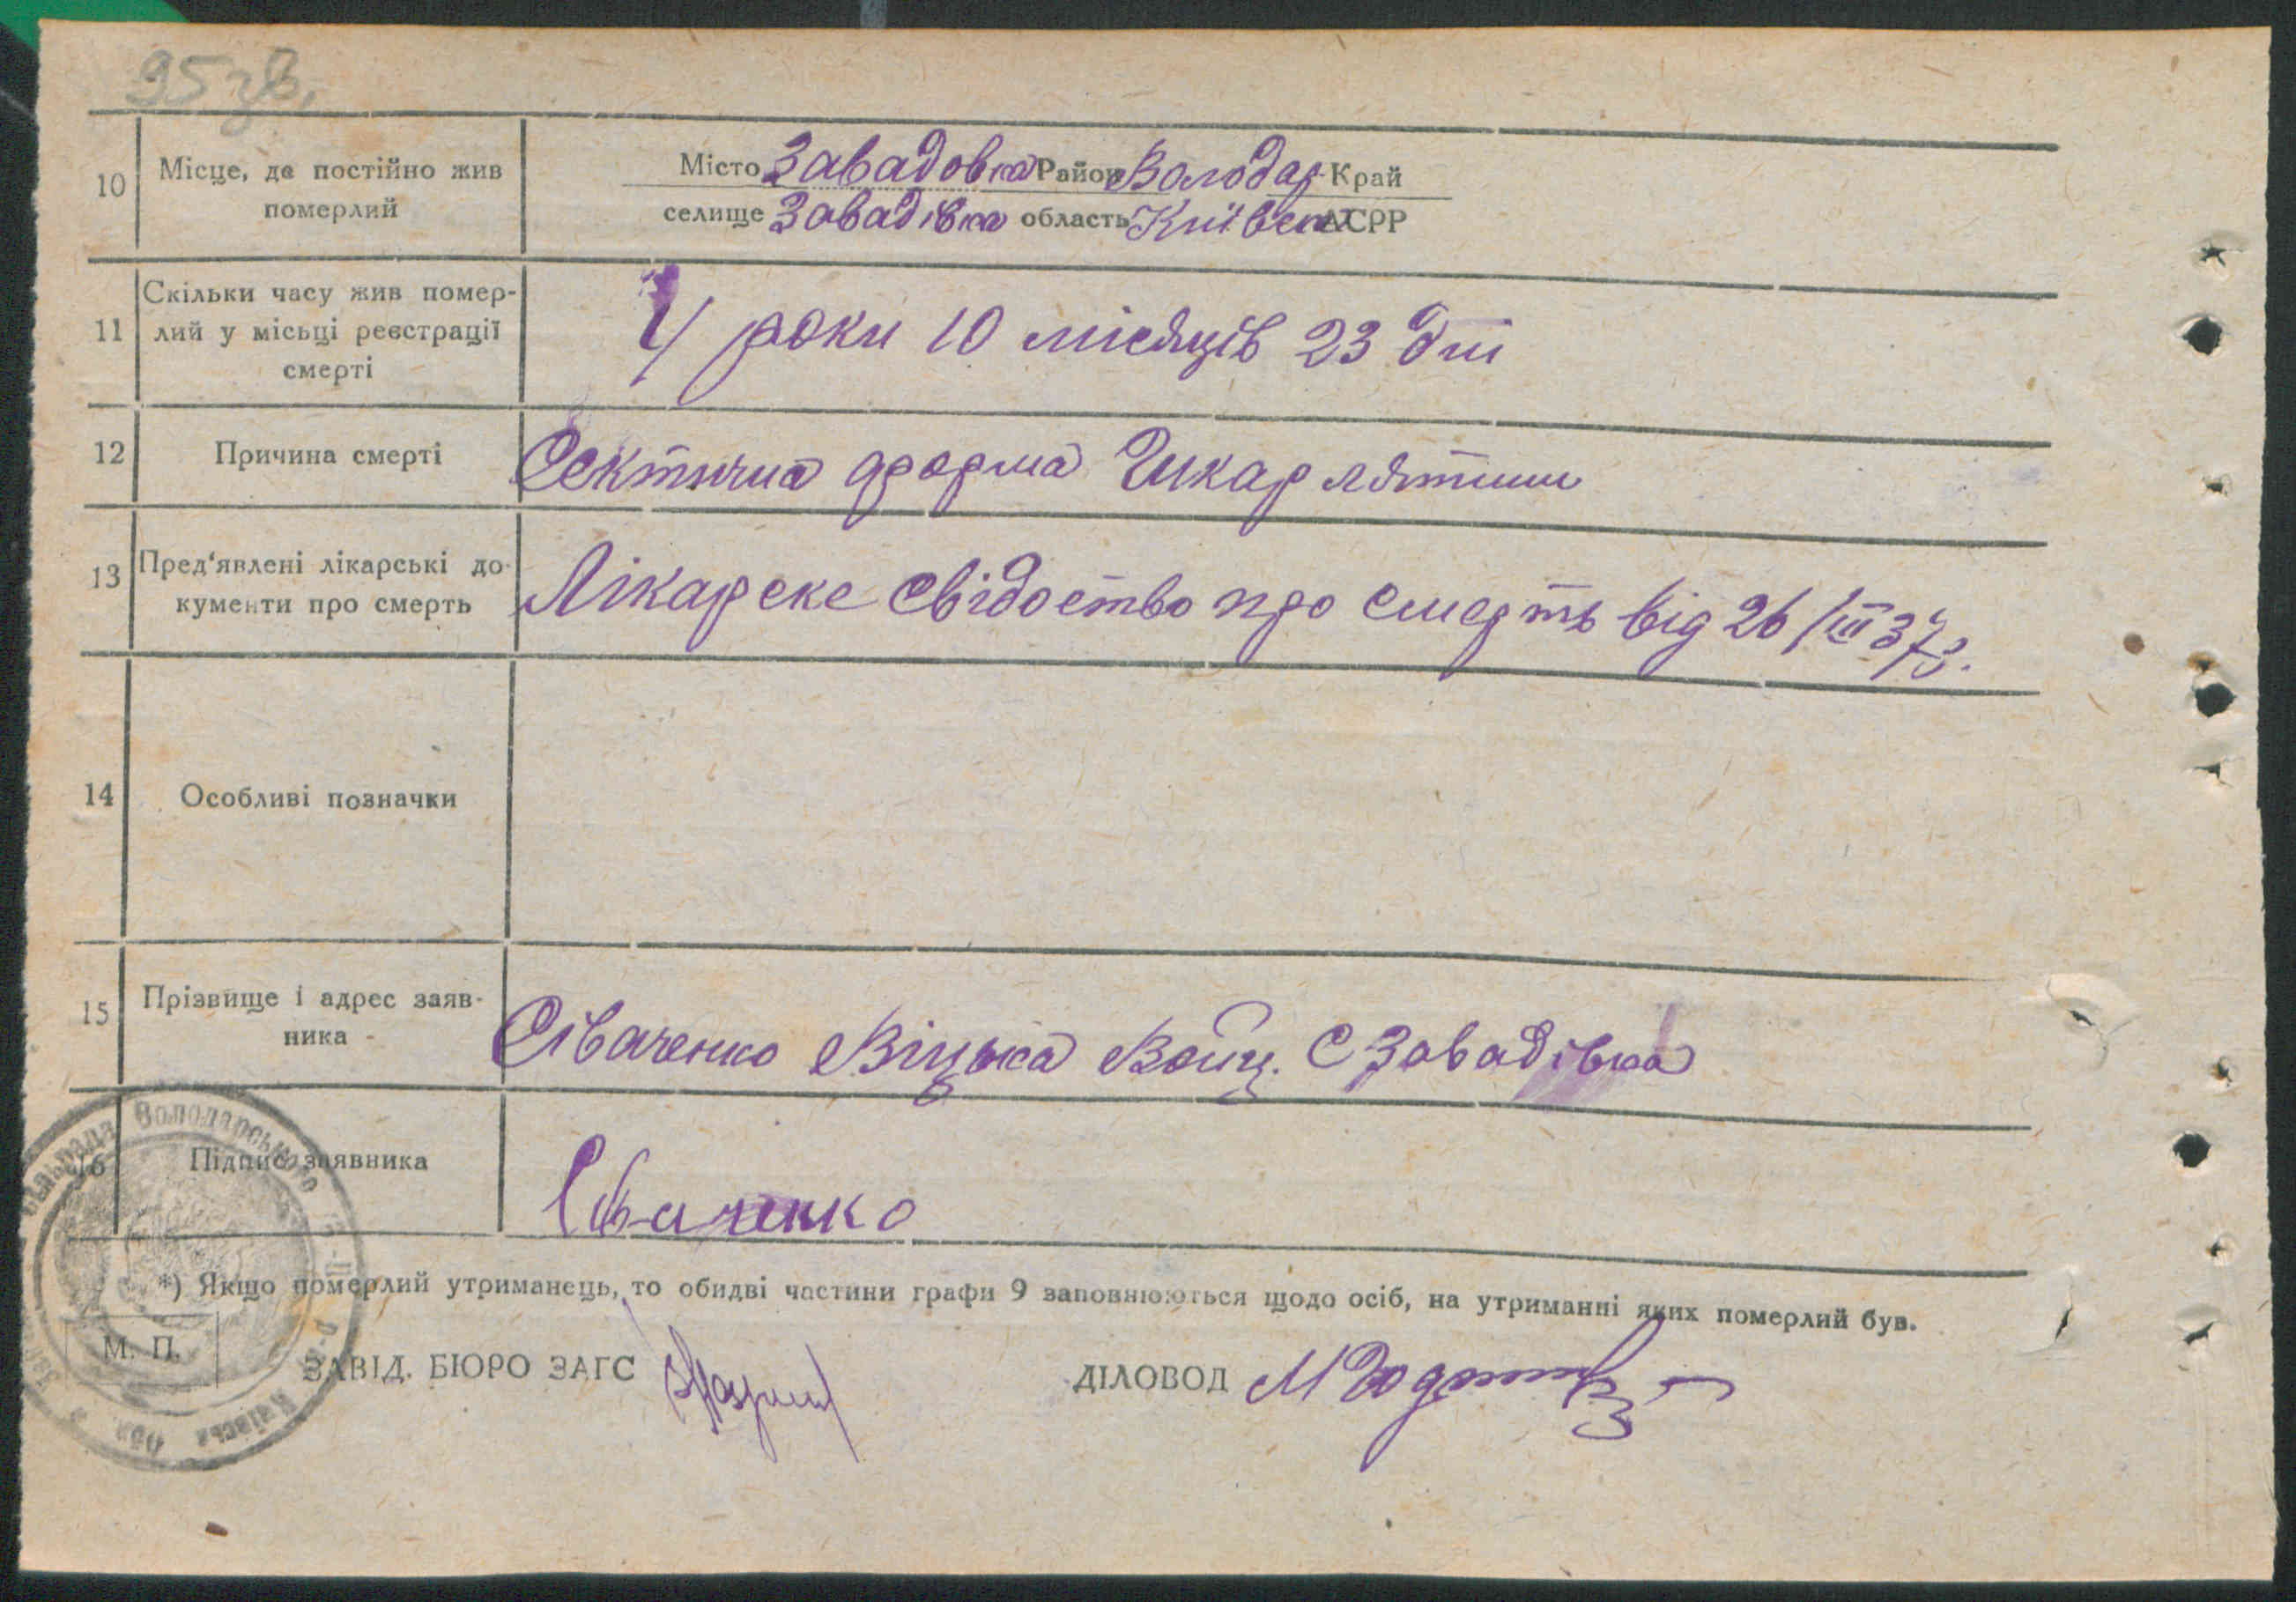 95 зв.
10 Місце, де постійно жив померлий
Місто Завадовка Район Володар Край
селище Завадівка область Київськ АСРР
11 Скільки часу жив помер-
лий у місьці реєстрації
смерті
4 роки 10 місяців 23 дні
12 Причина смерті
Сектична форма Шкарлятини
13 Пред'явлені лікарські до-
кументи про смерть
Лікарске свідоство про смерть від 26/III 37 р.
14 Особливі позначки
15 Прізвище і адрес заяв-
ника
Сіваченко Войц. С Завадівка
16 Підпис заявника
Сіваченко
*) Якщо померлий утриманець, то обидві частини графи 9 заповнюються щодо осіб, на утриманні яких померлий був.
М. П.
ЗАВІД. БЮРО ЗАГС
ДІЛОВОД
сільрада Володарського р-ну Київська обл